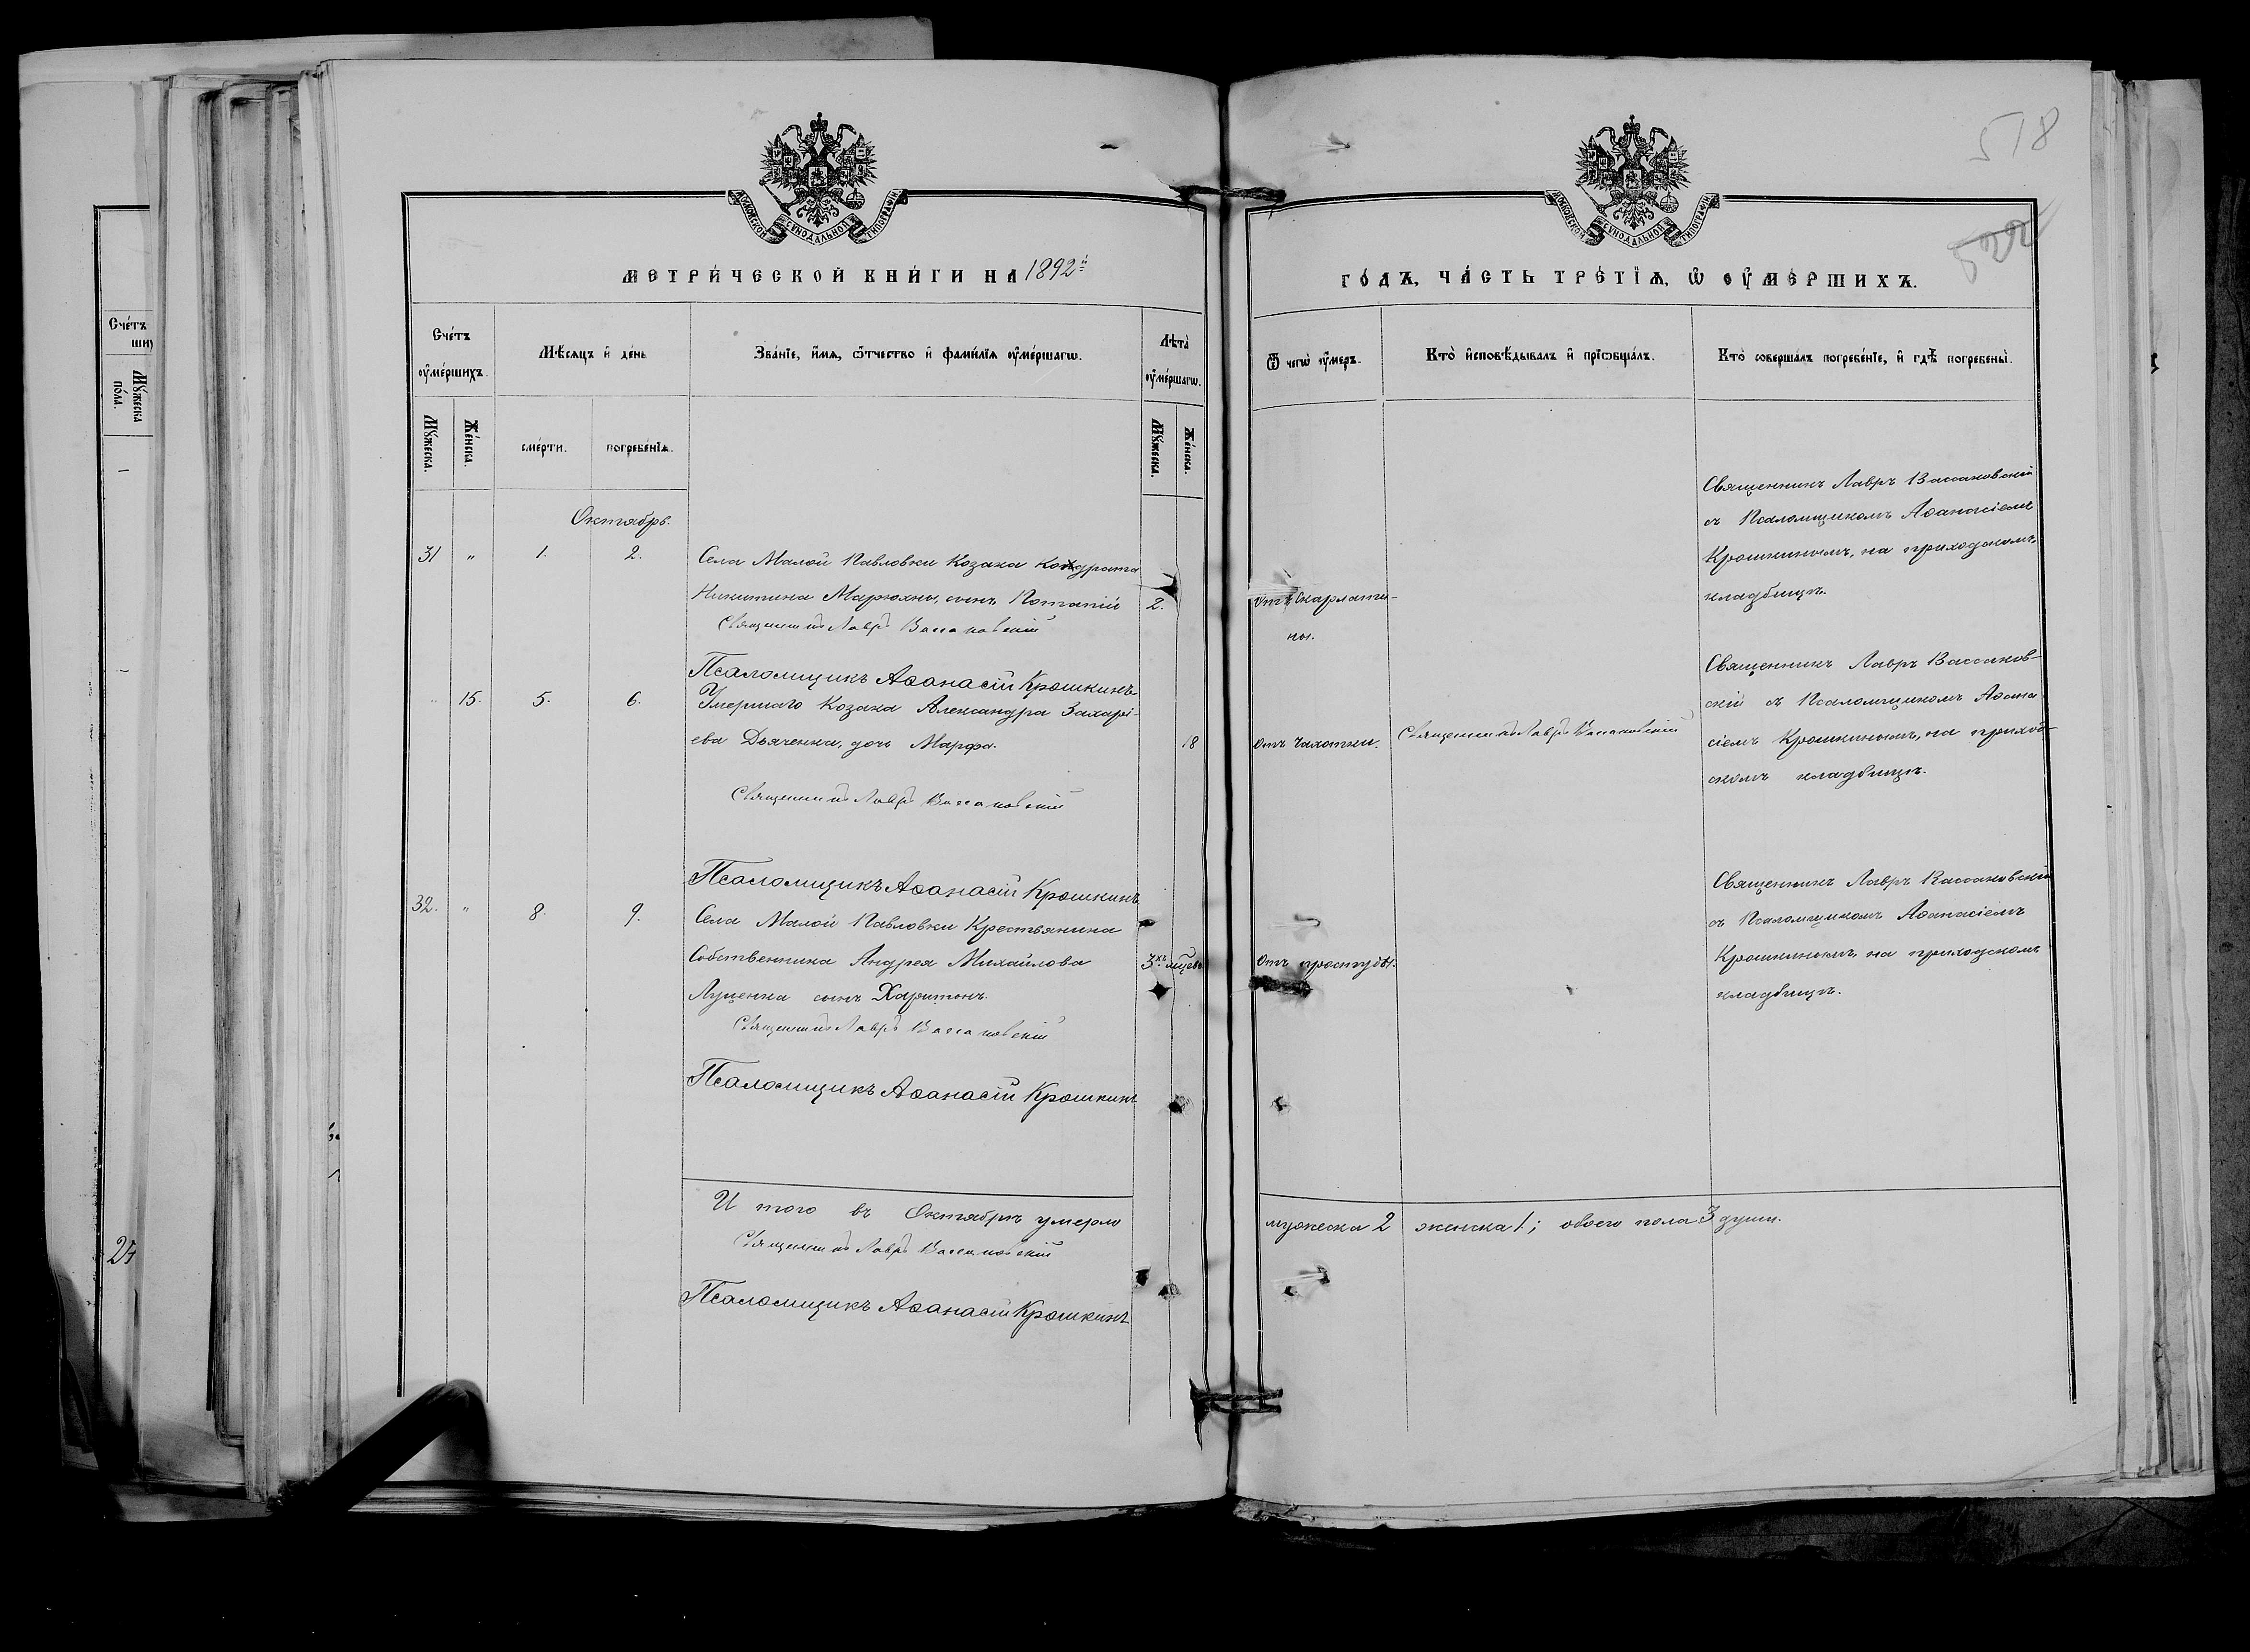 518
522
МОСКОВСКОЙ СѴНОДАЛЬНОЙ ТИПОГРАФІИ
МОСКОВСКОЙ СѴНОДАЛЬНОЙ ТИПОГРАФІИ
МЕТРИ́ЧЕСКОЙ КНИ́ГИ НА 1892й
ГО́ДЪ, ЧА́СТЬ ТРЕ́ТІѦ, Ѡ҆ ОУ҆МЕ́РШИХЪ.
Сче́тъ
оу҆ме́ршихъ.
Мѣ́сѧцъ и҆ де́нь
Зва́нїе, и҆́мѧ, ѻ҆́тчество и҆ фами́лїѧ оу҆ме́ршагѡ.
Лѣта̀
оу҆ме́ршагѡ.
Ѿ чегѡ̀ оу҆́меръ.
Кто̀ и҆сповѣ́дывалъ и҆ прїѡбща́лъ.
Кто̀ соверша́лъ погребе́нїе, и҆ гдѣ̀ погребены̀.
Мꙋ́жеска.
Же́нска.
сме́рти.
погребе́нїѧ.
Мꙋ́жеска.
Же́нска.
Октябрь.
31 " 1. 2.
Села Малой Павловки Козака Кондрата
Никитина Марюхны, сынъ Потапій 2.
Священникъ Лавръ Вассаковскій
Псаломщикъ Аѳанасій Крошкинъ
отъ Скарлати-
ны.
Священникъ Лавръ Вассаковскій
съ Псаломщикомъ Аѳанасіемъ
Крошкинымъ, на приходскомъ
кладбищѣ.
" 15. 5. 6.
Умершаго Козака Александра Захарі-
ева Дьяченка, дочь Марфа. 18
Священникъ Лавръ Вассаковскій
Псаломщикъ Аѳанасій Крошкинъ
отъ Чахотки.
Священникъ Лавръ Вассаковскій
Священникъ Лавръ Вассаков-
скій съ Псаломщикомъ Аѳана
сіемъ Крошкинымъ, на приход-
скомъ кладбищѣ.
32. " 8. 9.
Села Малой Павловки Крестьянина
Собственника Андрея Михайлова 3хъ мѣцевъ
Луценка сынъ Харитонъ.
Священникъ Лавръ Вассаковскій
Псаломщикъ Аѳанасій Крошкинъ
отъ простуды.
Священникъ Лавръ Вассаковскій
съ Псаломщикомъ Аѳанасіемъ
Крошкинымъ, на приходскомъ
кладбищѣ.
И того въ Октябрѣ умерло
мужеска 2 женска 1; обоего пола 3 души.
Священникъ Лавръ Вассаковскій
Псаломщикъ Аѳанасій Крошкинъ
Сче́тъ
Мꙋ́жеска
по́ла.
27